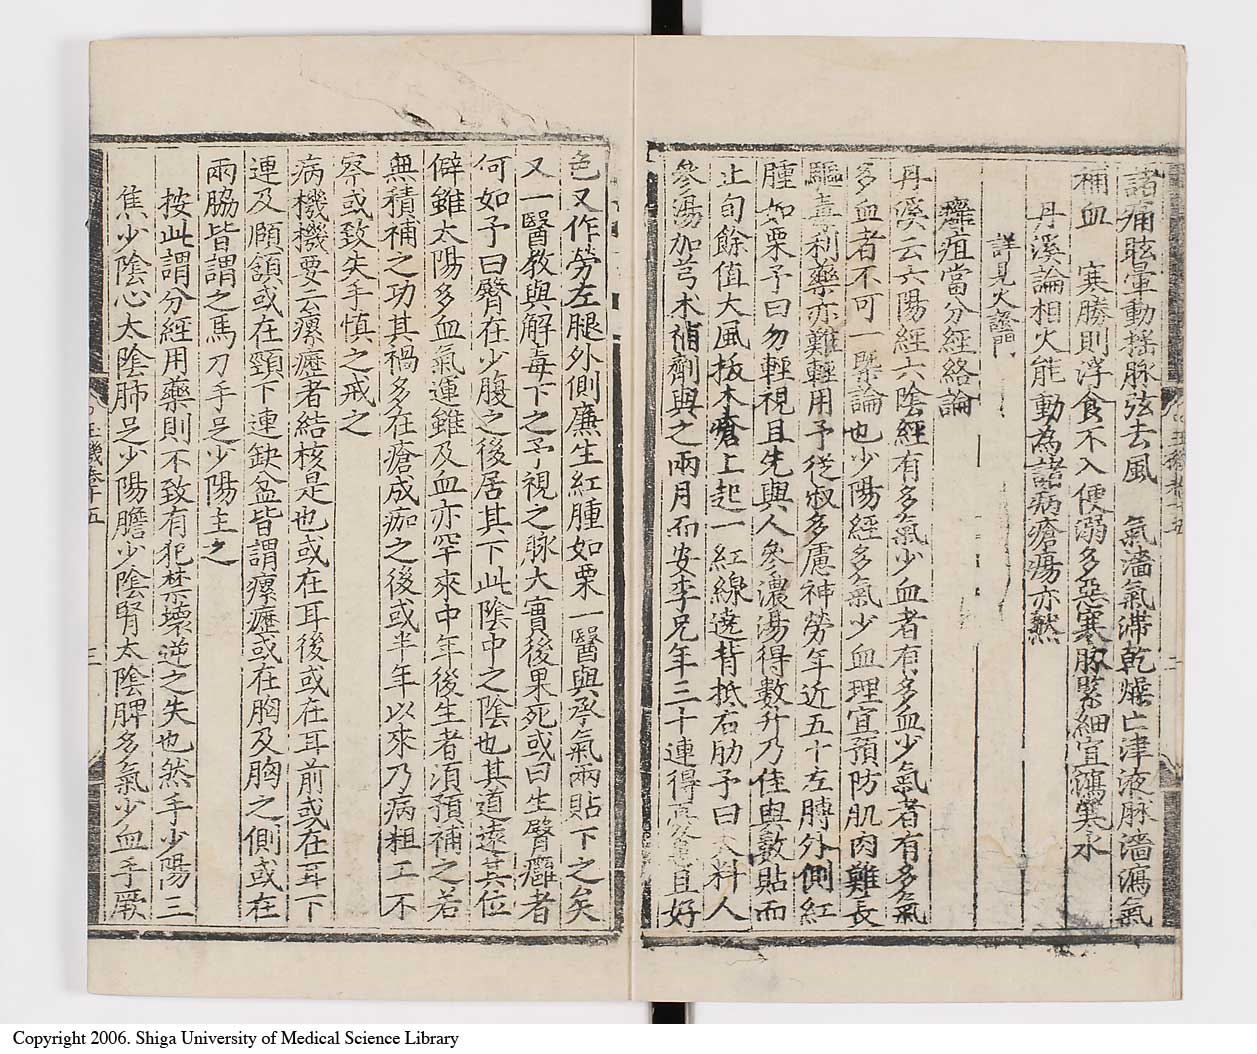 諸痛眩暈動搖脉弦去風　氣濇氣滞乾燥亡津液脉濇瀉氣
補血　寒勝則浮食不入便溺多惡寒脉緊細宜瀉寒水
丹溪論相火能動為諸病瘡瘍亦然
詳見火證門
癰疽當分經絡論
丹溪云六陽經六陰經有多氣少血者有多血少氣者有多氣
多血者不可一槩論也少陽經多氣少血理宜預防肌肉難長
驅毒利藥亦難輕用予從叔多慮神勞年近五十左膊外側紅
腫如栗予曰勿輕視且先與人參濃湯得數升乃佳與數貼而
止旬餘值大風拔木瘡上起一紅線遶背抵右肋予曰 料人
參湯加芎术補劑與之兩月而安李兄年三十連得 且好
色又作勞左腿外側廉生紅腫如栗一醫與承氣兩貼下之矣
又一醫教與解毒下之予視之脉大實後果死或曰生臀癰者
何如予曰臀在少腹之後居其下此陰中之陰也其道遠其位
僻雖太陽多血氣運雖及血亦罕來中年後生者須預補之若
無積補之功其禍多在瘡成痂之後或半年以來乃病粗工不
察或致失手慎之戒之
病機機要云瘰癧者結核是也或在耳後或在耳前或在耳下
連及頤頷或在頸下連缺盆皆謂瘰癧或在胸及胸之側或在
兩脇皆謂之馬刀手足少陽主之
按此謂分經用藥則不致有犯禁壞逆之失也然手少陽三
焦少陰心太陰肺足少陽膽少陰腎太陰脾多氣少血手厥
Copyright 2006. Shiga University of Medical Science Library